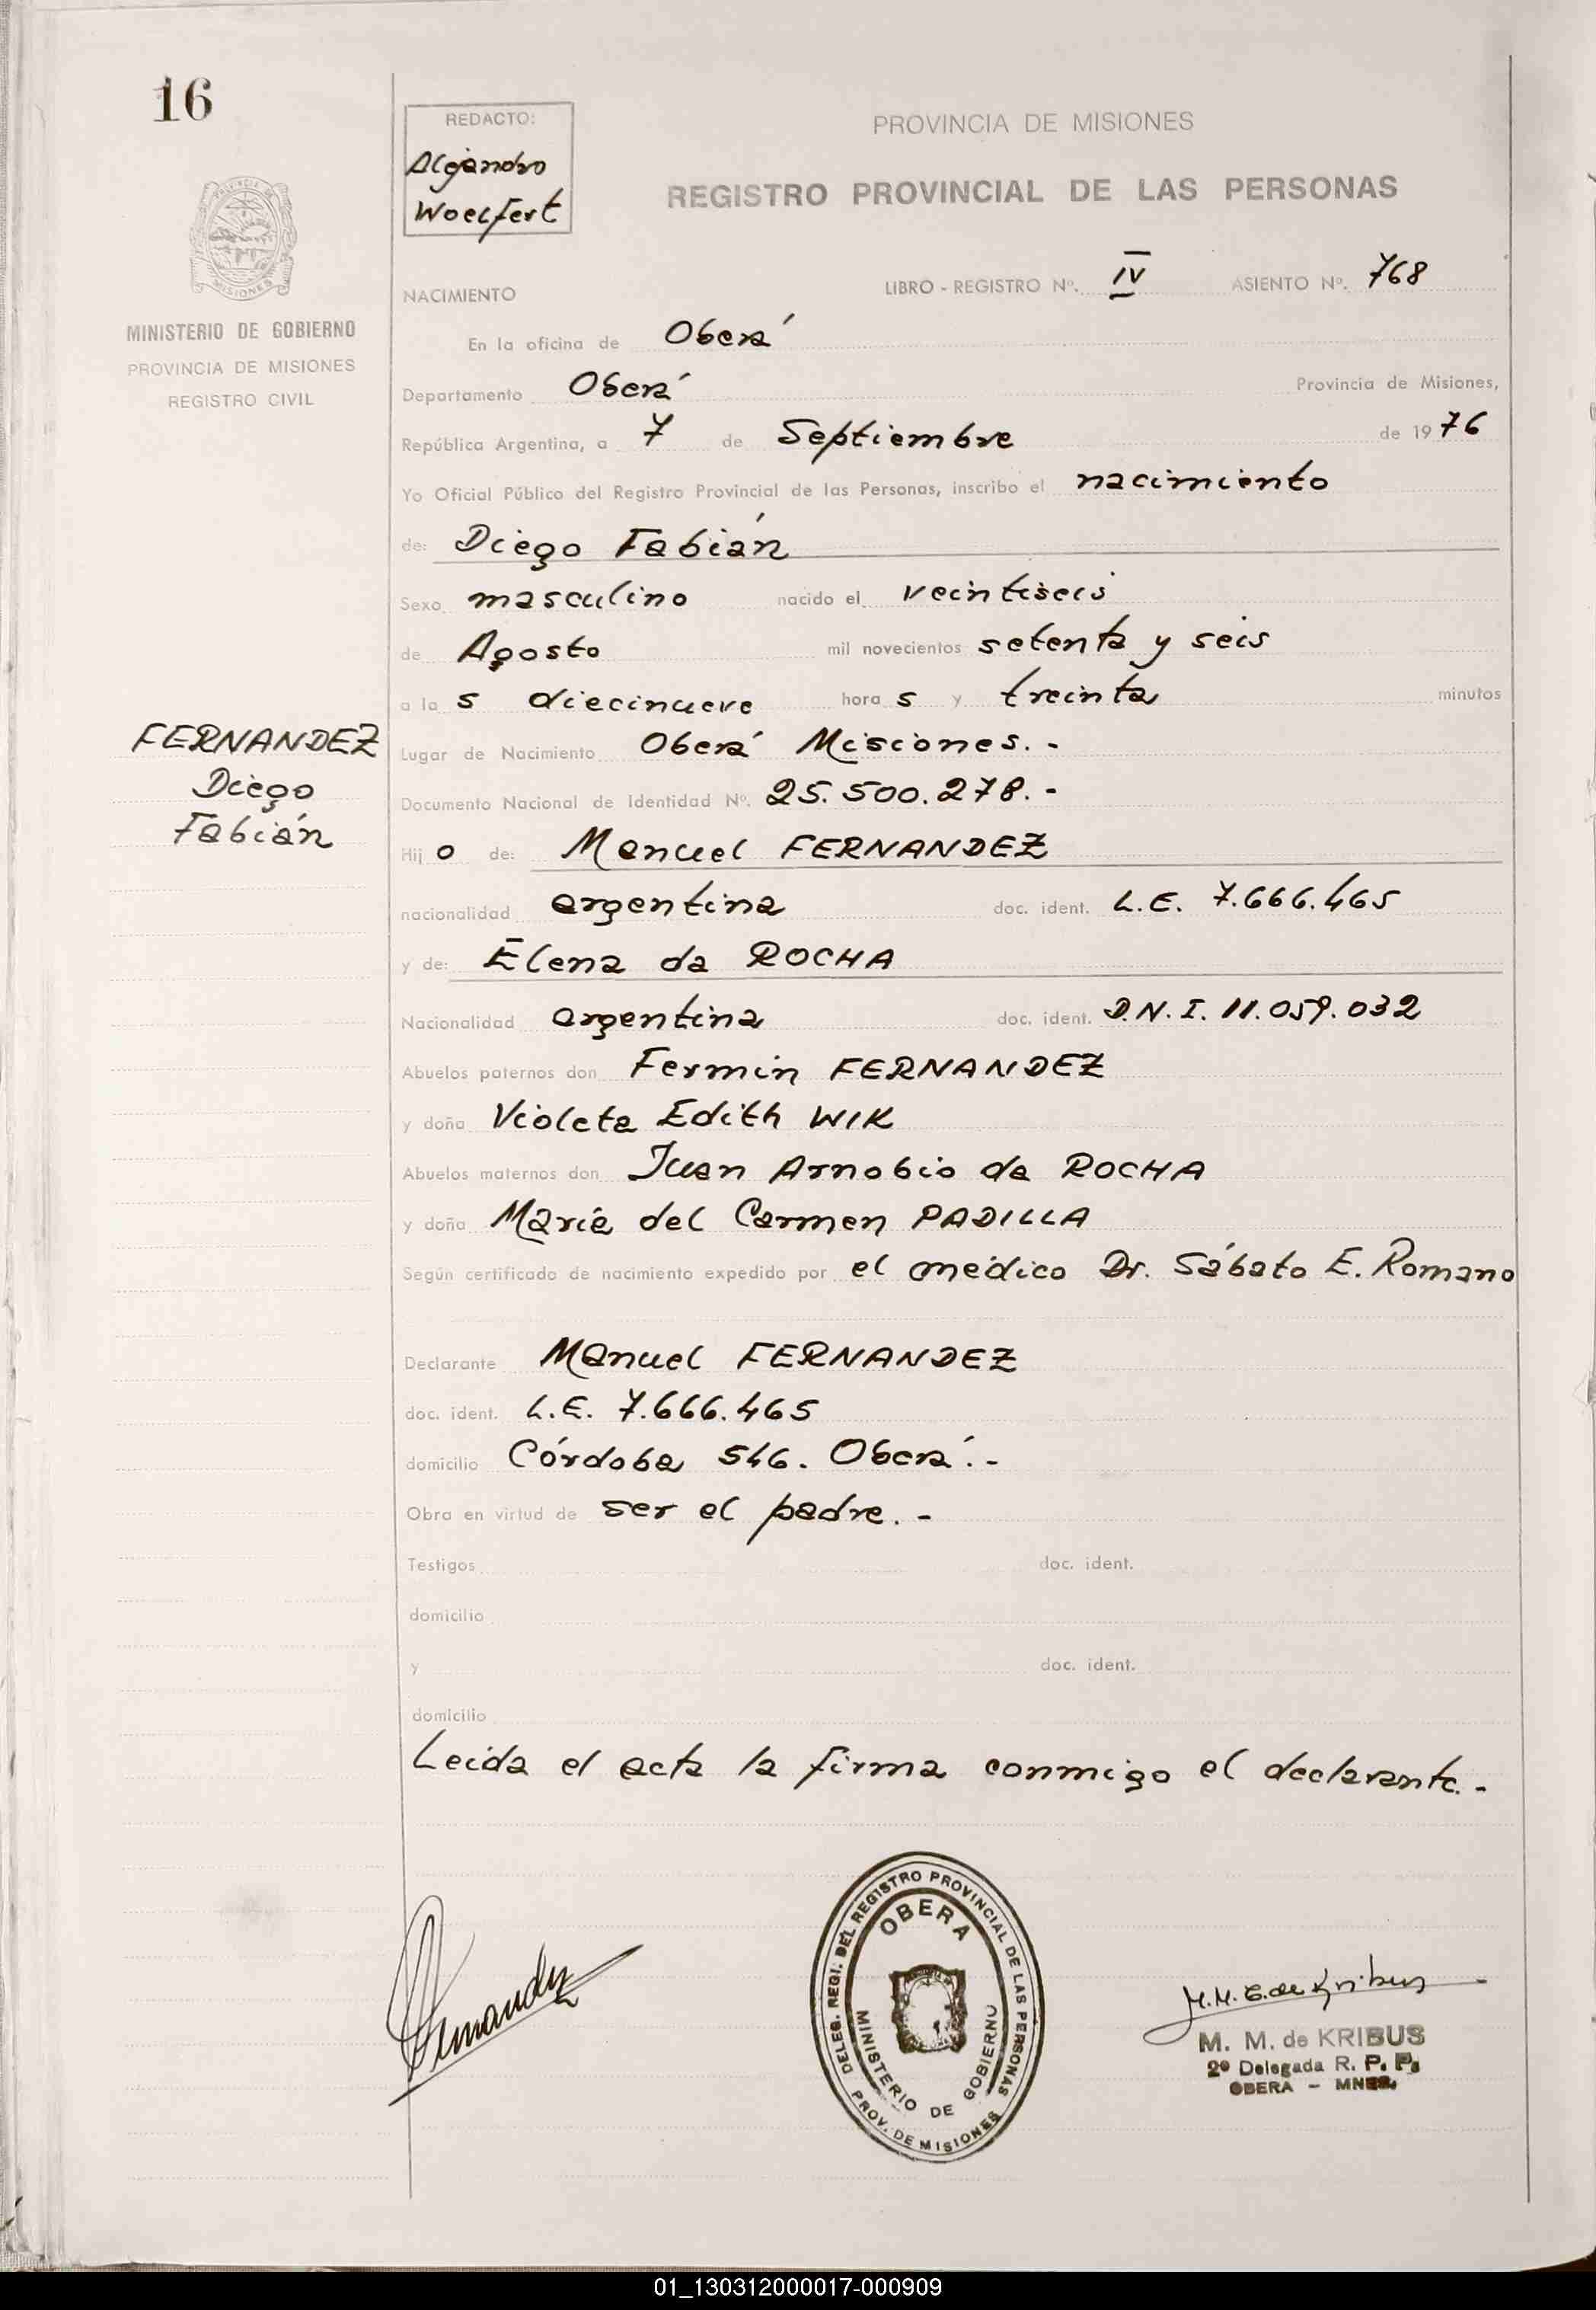 16
REDACTO:
Alejandro
Woelfert
PROVINCIA DE MISIONES
REGISTRO PROVINCIAL DE LAS PERSONAS
MISIONES
MINISTERIO DE GOBIERNO
PROVINCIA DE MISIONES
REGISTRO CIVIL
NACIMIENTO LIBRO - REGISTRO Nº. IV ASIENTO Nº. 768
En la oficina de Oberá
Departamento Oberá Provincia de Misiones,
República Argentina, a 7 de Septiembre de 1976
Yo Oficial Público del Registro Provincial de las Personas, inscribo el nacimiento
de: Diego Fabián
Sexo masculino nacido el veintiseis
de Agosto mil novecientos setenta y seis
a las diecinueve horas y treinta minutos
FERNANDEZ
Diego
Fabián
Lugar de Nacimiento Oberá Misiones. -
Documento Nacional de Identidad Nº. 25.500.278. -
Hijo de: Manuel FERNANDEZ
nacionalidad argentina doc. ident. L.E. 7.666.465
y de: Elena da ROCHA
Nacionalidad argentina doc. ident. D.N.I. 11.059.032
Abuelos paternos don Fermin FERNANDEZ
y doña Violeta Edith WIK
Abuelos maternos don Juan Arnobio da ROCHA
y doña María del Carmen PADILLA
Según certificado de nacimiento expedido por el médico Dr. Sábato E. Romano
Declarante Manuel FERNANDEZ
doc. ident. L.E. 7.666.465
domicilio Córdoba 546. Oberá. -
Obra en virtud de ser el padre. -
Testigos doc. ident.
domicilio
y doc. ident.
domicilio
Leida el acta la firma conmigo el declarante. -
Fernandez
DELEG. REGI. DEL REGISTRO PROVINCIAL DE LAS PERSONAS
OBERA
MINISTERIO DE GOBIERNO
PROV. DE MISIONES
M. M. de KRIBUS
2º Delegada R. P. P.
OBERA - MNES.
01_130312000017-000909